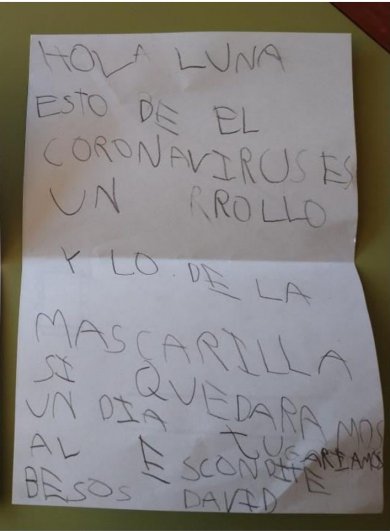 HOLA LUNA
ESTO DE EL
CORONAVIRUS ES
UN RROLLO
Y LO DE LA
MASCARILLA
SI QUEDARAMOS
UN DIA JUGARIAMOS
AL ESCONDITE
BESOS DAVID